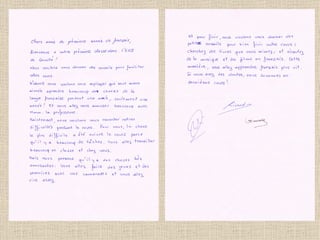 Chers amis de première année de français,
Bienvenue à votre première
de Sevilla!
Nous voulons vous donner des conseils pour faciliter
D'abord nous voulons vous expliquer que nous avons
appris beaucoup de choses de la
langue française pendant une seulement une
année! Et vous allez vous amuser beaucoup avec
la professeure
Maintenant nous voulons vous raconter notres
difficultés pendant le cours. Pour nous, la chose
la plus difficile a été suivre le cours parce
qu'il y a beaucoup de tâches. Vous allez travailler
beaucoup en classe et chez vous.
Mais nous pensons qu'il y a des choses très
amusantes. Vous allez faire des jeux et des
avec vos camarades et vous allez
rire
Et pour finir, nous voulons vous donner des
petits conseils pour bien finir votre cours:
cherchez des livres que vous aimez, et écoutez
de la musique et des films en français. Cette
manière, vous allez apprendre français plus vite.
Si vous avez des doutes, nous sommes en
deuxième cours!